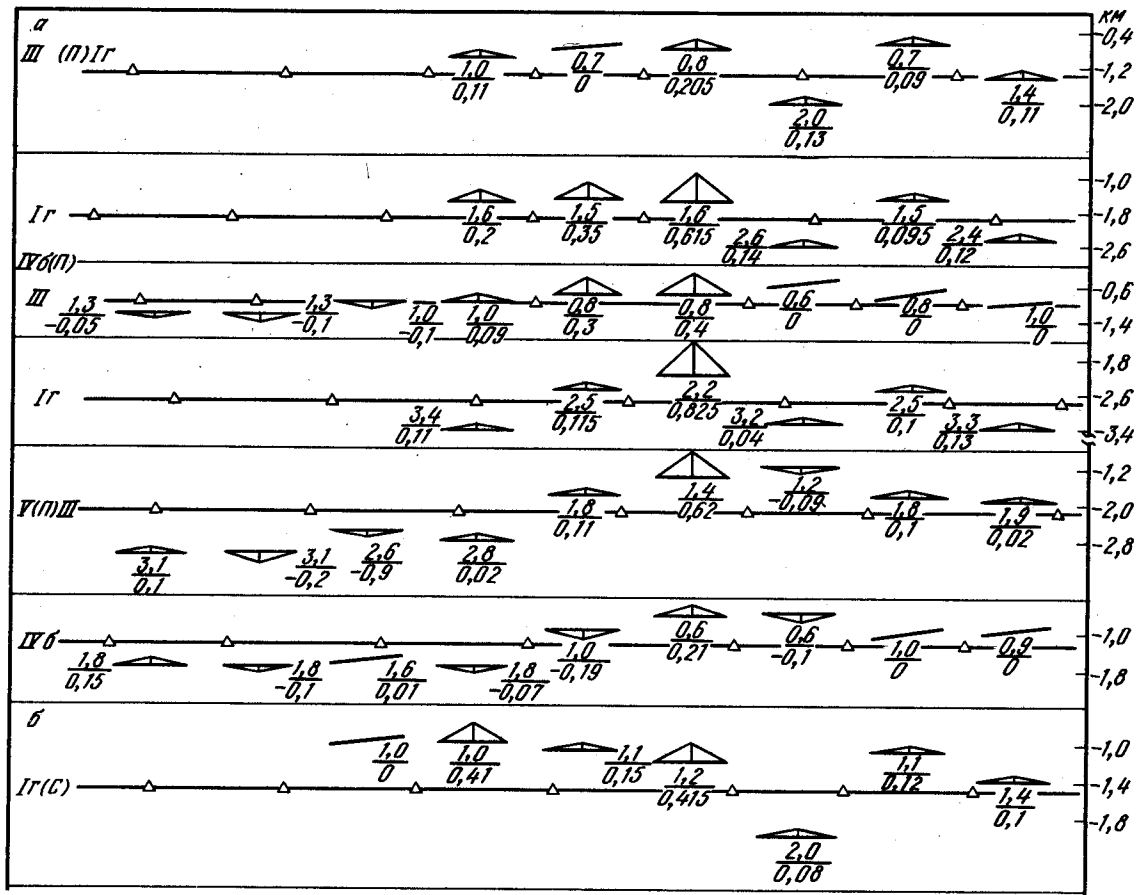 а
км
III (П)Iг
1,0
0,11
0,7
0
0,8
0,205
2,0
0,13
0,7
0,09
1,4
0,11
-0,4
-1,2
-2,0
Iг
1,6
0,2
1,5
0,35
1,6
0,615
2,6
0,14
1,5
0,095
2,4
0,12
-1,0
-1,8
-2,6
IVб(П)
III
1,3
-0,05
1,3
-0,1
1,0
-0,1
1,0
0,09
0,8
0,3
0,8
0,4
0,6
0
0,8
0
1,0
0
-0,6
-1,4
Iг
3,4
0,11
2,5
0,115
2,2
0,825
3,2
0,04
2,5
0,1
3,3
0,13
-1,8
-2,6
-3,4
V(П)III
3,1
0,1
3,1
-0,2
2,6
-0,9
2,8
0,02
1,8
0,11
1,4
0,62
1,2
-0,09
1,8
0,1
1,9
0,02
-1,2
-2,0
-2,8
IVб
1,8
0,15
1,8
-0,1
1,6
0,01
1,8
-0,07
1,0
-0,19
0,6
0,21
0,6
-0,1
1,0
0
0,9
0
-1,0
-1,8
б
Iг(С)
1,0
0
1,0
0,41
1,1
0,15
1,2
0,415
2,0
0,08
1,1
0,12
1,4
0,1
-1,0
-1,4
-1,8